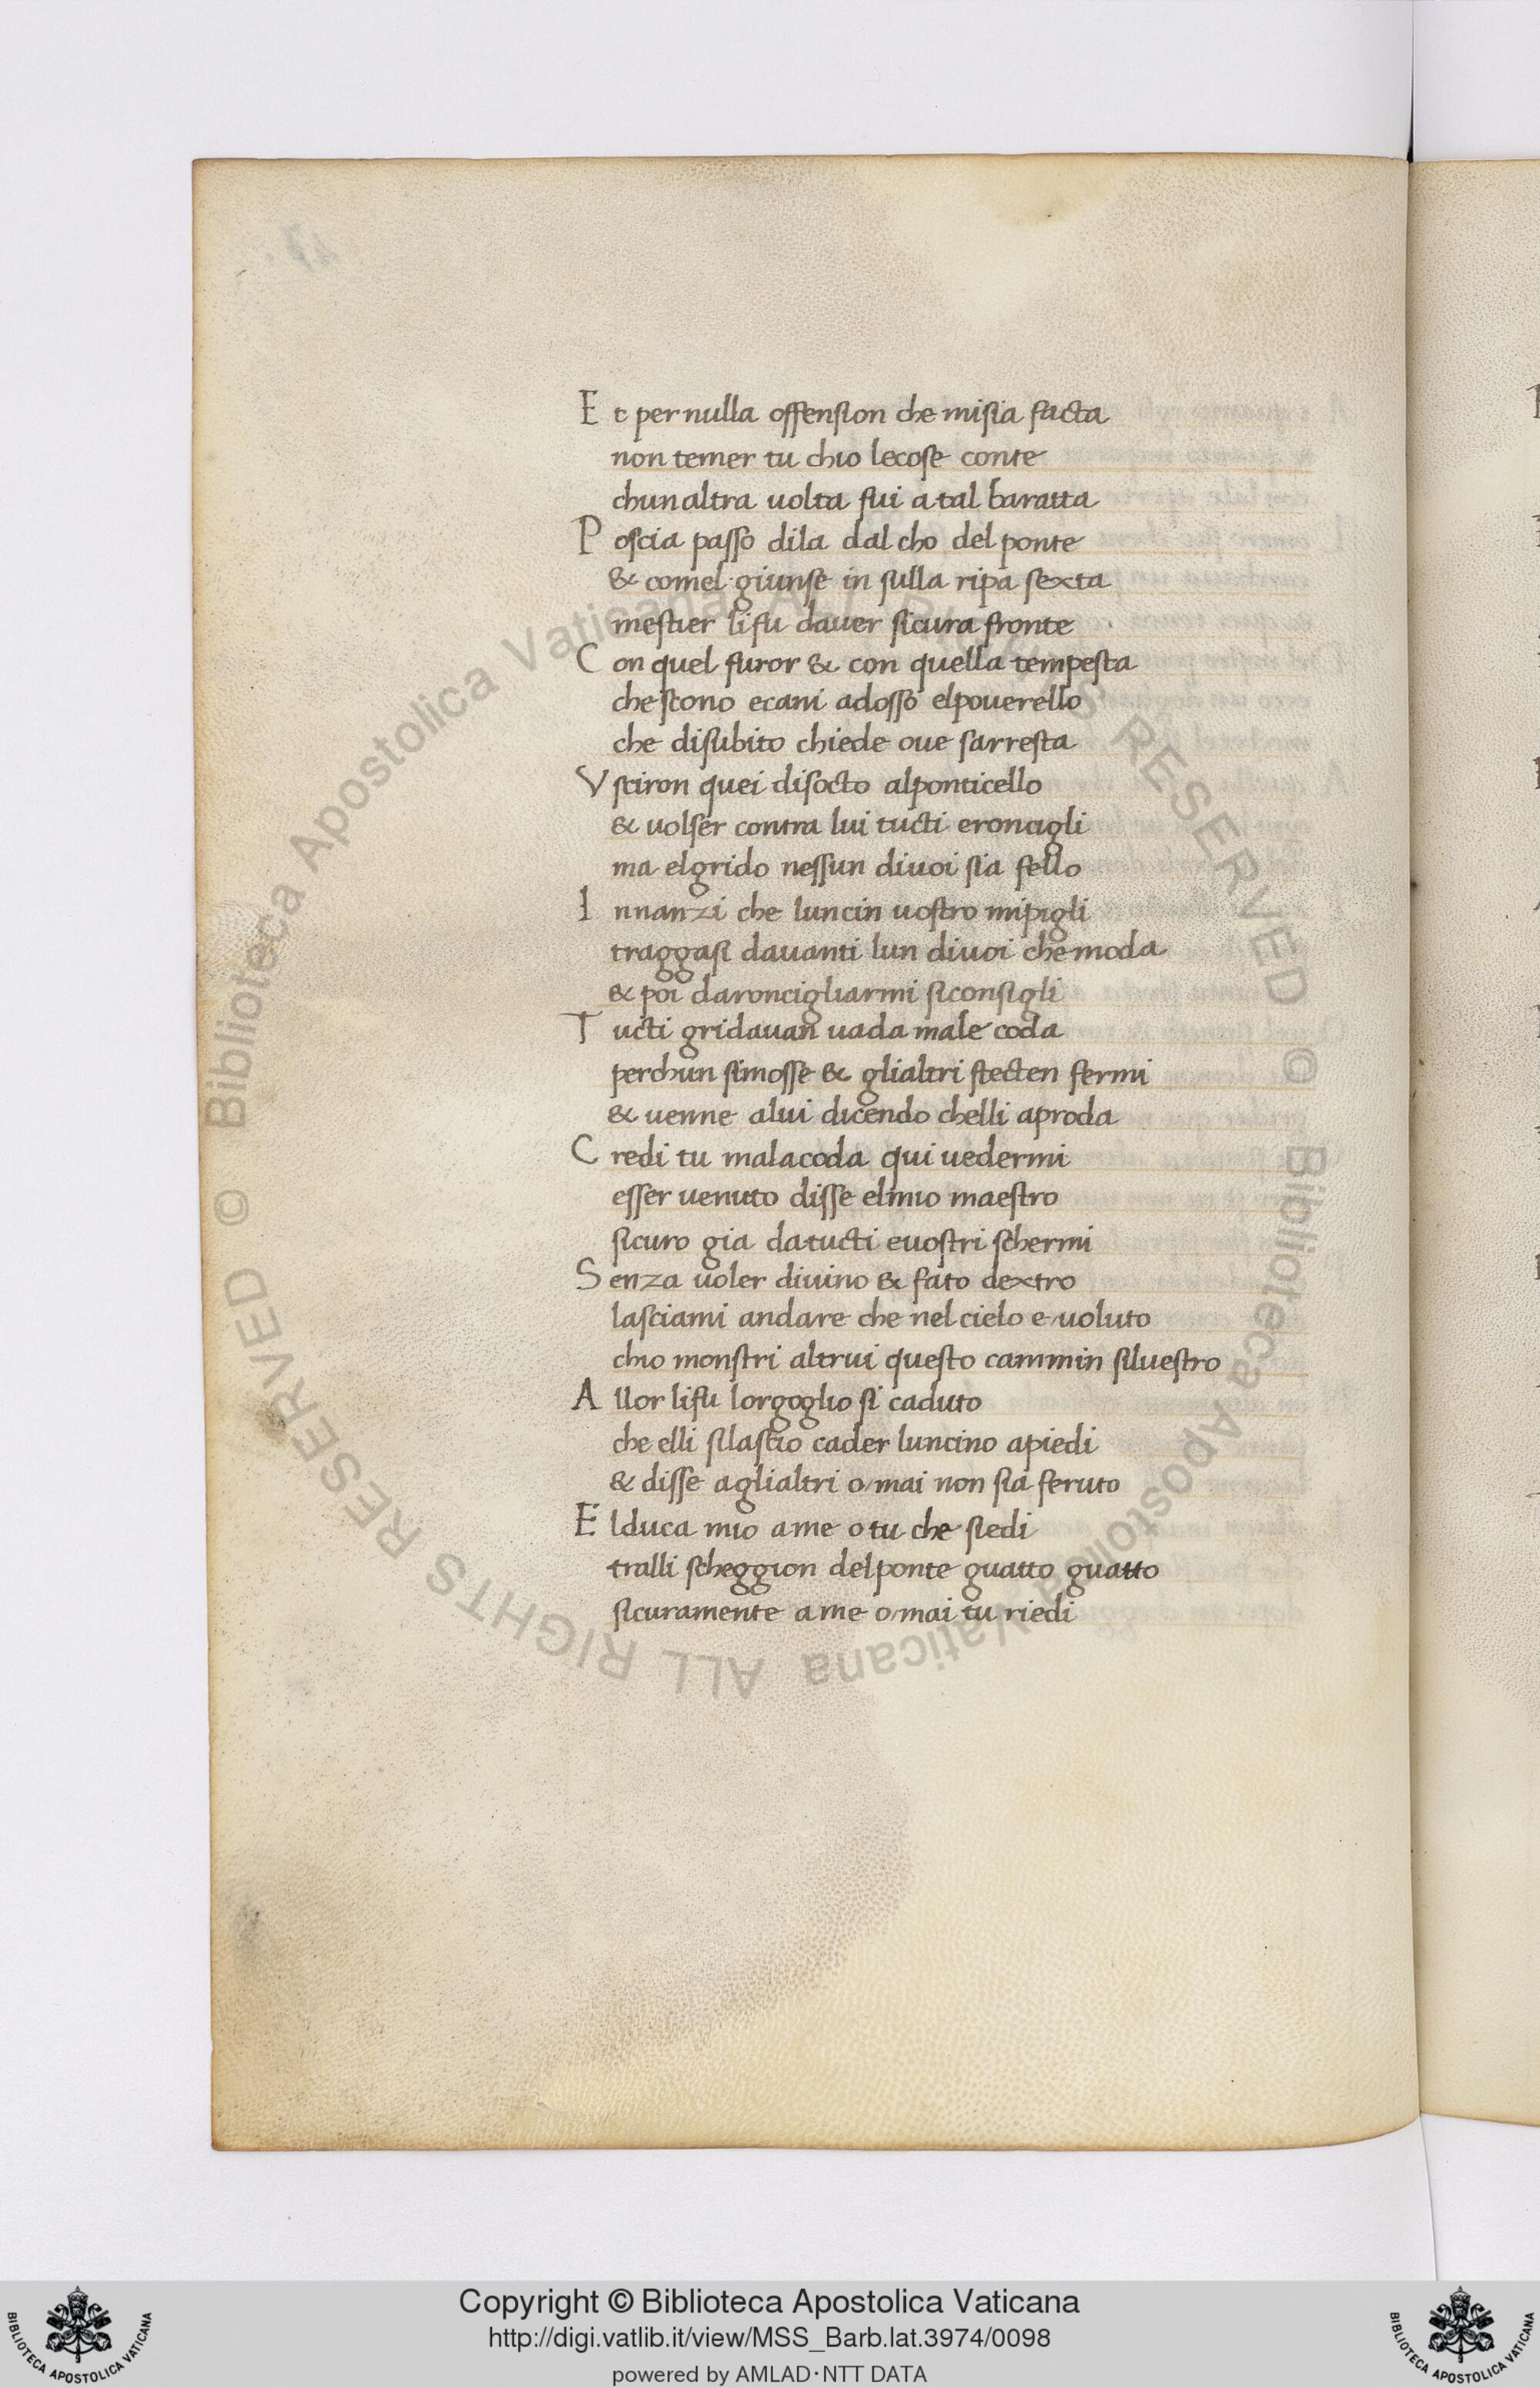 E t per nulla offension che misia facta
non temer tu chio lecose conte
chunaltra uolta fui a tal baratta
P oscia passo dila dal cho del ponte
& comel giunse in sulla ripa sexta
mestier lifu dauer sicura fronte
C on quel furor & con quella tempesta
chescono ecani adosso elpouerello
che disubito chiede oue sarresta
V sciron quei disocto alponticello
& uolser contra lui tucti eroncigli
ma elgrido nessun diuoi sia fello
I nnanzi che luncin uostro mipigli
traggasi dauanti lun diuoi chemoda
& poi daroncigliarmi siconsigli
T ucti gridauan uada male coda
perchun simosse & glialtri stecten fermi
& uenne alui dicendo chelli aproda
C redi tu malacoda qui uedermi
esser uenuto disse elmio maestro
sicuro gia da tucti euostri schermi
S enza uoler diuino & fato dextro
lasciami andare che nel cielo e/uoluto
chio monstri altrui questo cammin siluestro
A llor lifu lorgoglio si caduto
che elli silascio cader luncino apiedi
& disse aglialtri o/mai non sia feruto
E lduca mio a me o tu che siedi
tralli scheggion delponte guatto guatto
sicuramente a me o/mai tu riedi
© Biblioteca Apostolica Vaticana ALL RIGHTS RESERVED © Biblioteca Apostolica Vaticana ALL RIGHTS RESERVED
Copyright © Biblioteca Apostolica Vaticana
http://digi.vatlib.it/view/MSS_Barb.lat.3974/0098
powered by AMLAD·NTT DATA
BIBLIOTECA APOSTOLICA VATICANA
BIBLIOTECA APOSTOLICA VATICANA